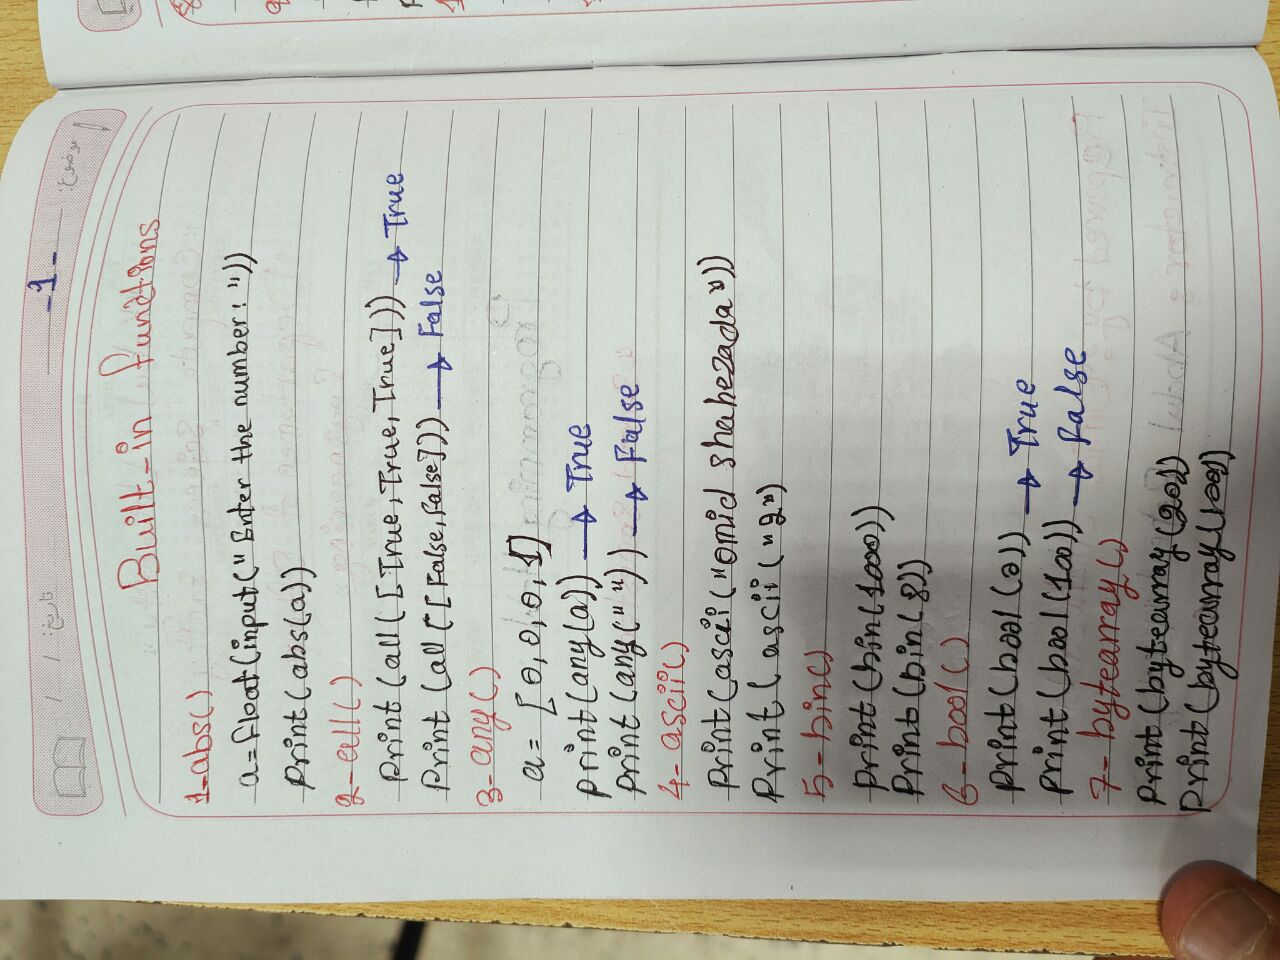 موضوع:
تاریخ: / /
-1-
Built-in functions
1-abs()
a=float(input("Enter the number:"))
print(abs(a))
2-all()
print(all([True,True,True]))→True
print(all([False,False]))→False
3-any()
a=[0,0,0,1]
print(any(a))→True
print(any(""))→False
4-ascii()
print(ascii("omid shahezada"))
print(ascii("2"))
5-bin()
print(bin(1000))
print(bin(8))
6-bool()
print(bool(2))→True
print(bool(100))→False
7-bytearray()
print(bytearray(20))
print(bytearray(100))